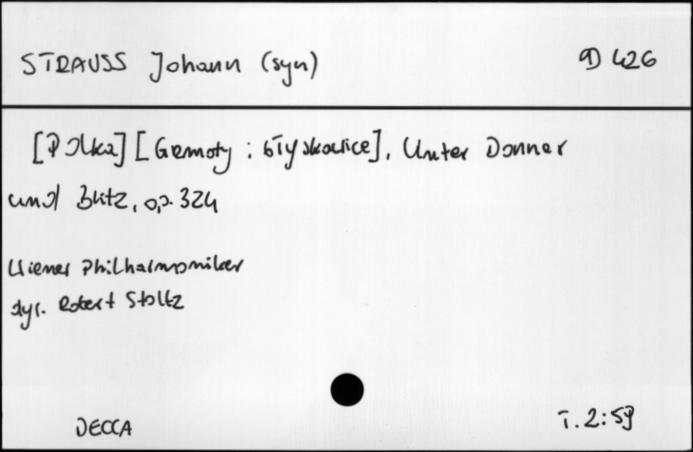 STRAUSS Johann (syn)
D 426
[Polka] [Grzmoty i błyskawice], Unter Donner
und Blitz, op. 324
Wiener Philharmoniker
dyr. Robert Stoltz
DECCA
T. 2:59